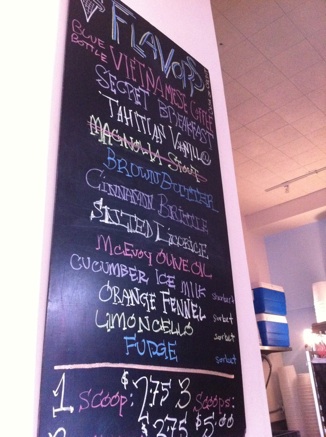 FLAVORS
BLUE BOTTLE VIETNAMESE COFFEE
SECRET BREAKFAST
TAHITIAN VANILLA
MAGNOLIA STOUT
BROWN BUTTER
CINNAMON BRITTLE
SALTED LICORICE
McEVOY OLIVE OIL
CUCUMBER ICE MILK sherbet
ORANGE FENNEL sorbet
LIMONCELLO sorbet
FUDGE sorbet
1 SCOOP: $2.75 3 SCOOPS:
$3.75 $5.00